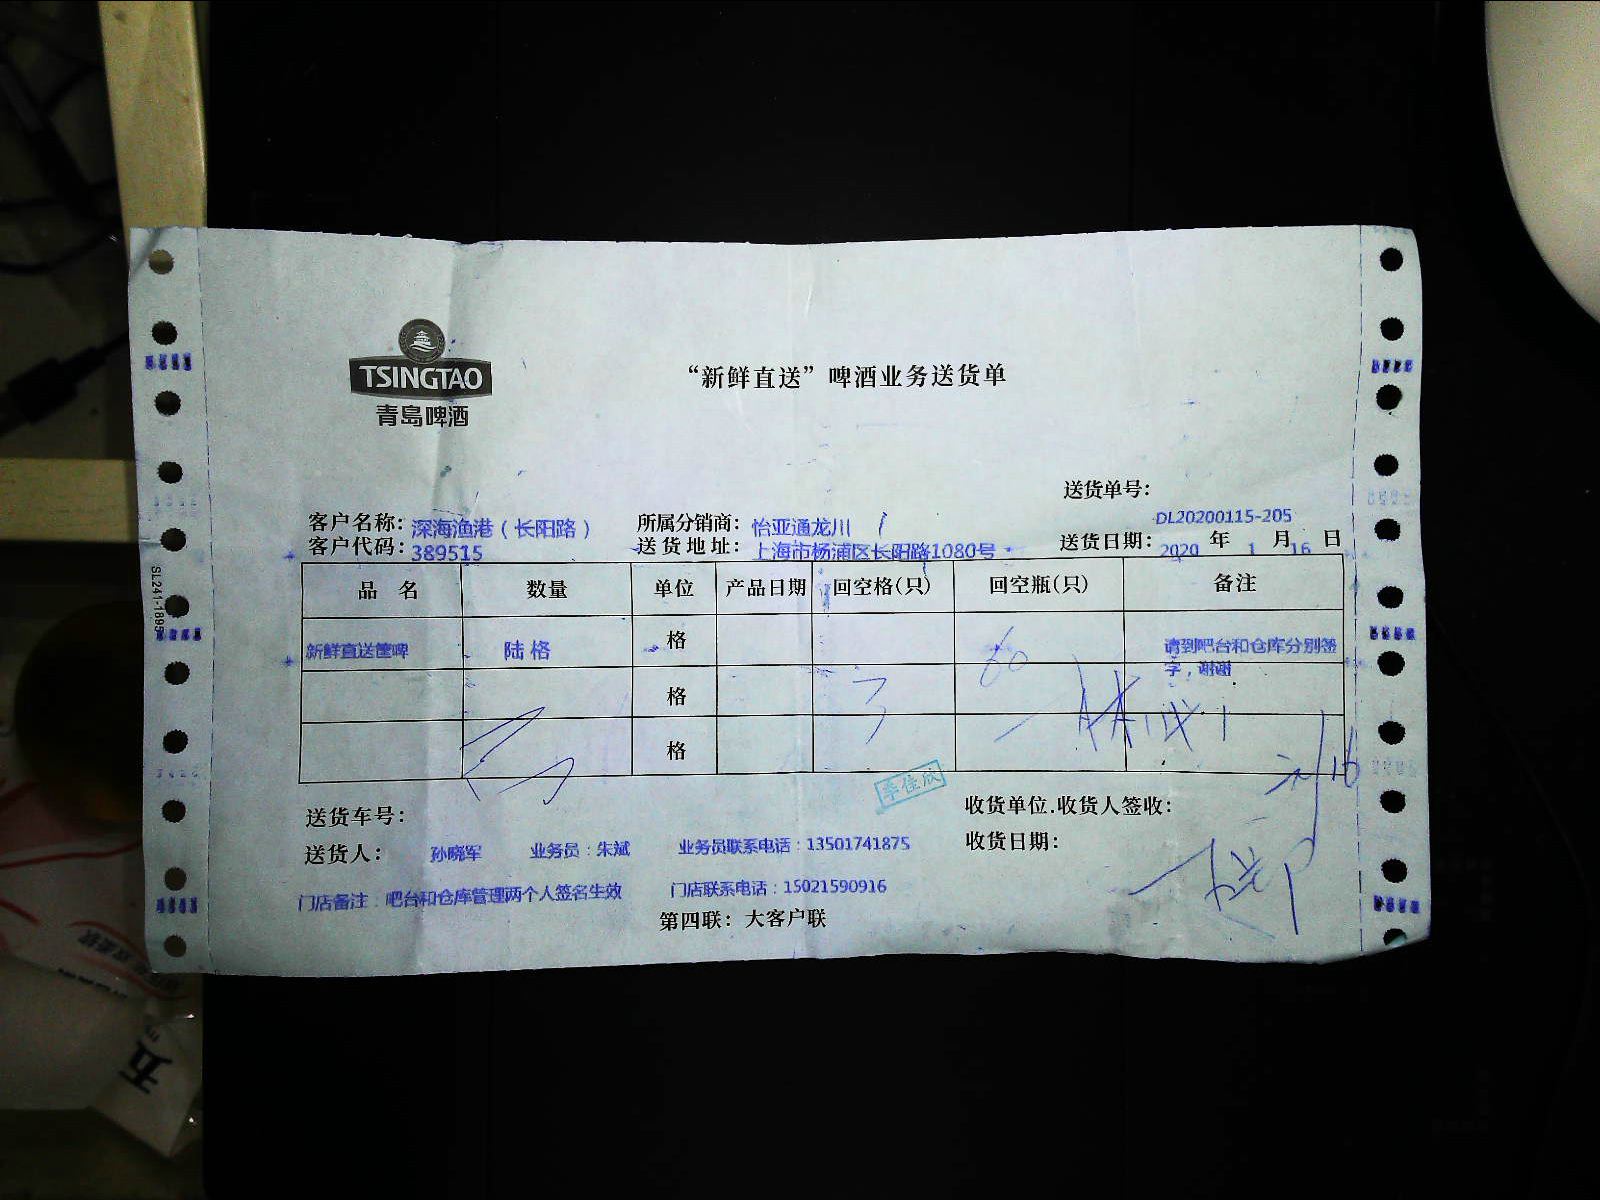 TSINGTAO
青岛啤酒
“新鲜直送”啤酒业务送货单
送货单号：
DL20200115-205
客户名称：深海渔港（长阳路） 所属分销商：怡亚通龙川
客户代码：389515 送货地址：上海市杨浦区长阳路1080号 送货日期：2020 年 1 月 16 日
品 名 数量 单位 产品日期 回空格(只) 回空瓶(只) 备注
新鲜直送筐啤 陆格 格 60 请到吧台和仓库分别签字，谢谢
格 3
格
李佳欣
送货车号： 收货单位.收货人签收：
送货人： 孙晓军 业务员：朱斌 业务员联系电话：13501741875 收货日期：
门店备注：吧台和仓库管理两个人签名生效 门店联系电话：15021590916
第四联：大客户联
五